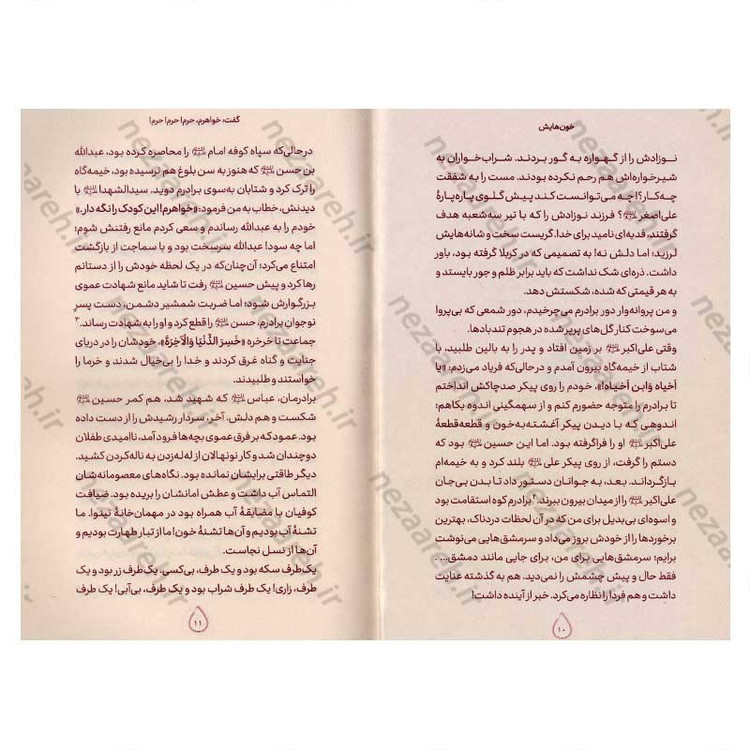 خون‌هایش
نـوزادش را از گهواره به گور بردند. شراب‌خواران به
شیرخواره‌اش هم رحم نکرده بودند. مست را به شفقت
چه‌کار؟! چه می‌توانست کند پیش گلوی پاره‌پارهٔ
علی‌اصغر؟ فرزند نوزادش را که با تیر سه‌شعبه هدف
گرفتند، فدیه‌ای نامید برای خدا. گریست سخت و شانه‌هایش
لرزید؛ اما دلش نه! به تصمیمی که در کربلا گرفته بود، باور
داشت. ذره‌ای شک نداشت که باید برابر ظلم و جور بایستد و
به هر قیمتی که شده، شکستش دهد.
و من پروانه‌وار دور برادرم می‌چرخیدم، دور شمعی که بی‌پروا
می‌سوخت کنار گل‌های پرپر شده در هجوم تندبادها.
وقتی علی‌اکبر بر زمین افتاد و پدر را به بالین طلبید، با
شتاب از خیمه‌گاه بیرون آمدم و درحالی‌که فریاد می‌زدم: «یا
أخیاه وابن أخیاه!»، خودم را روی پیکر صدچاکش انداختم
تا برادرم را متوجه حضورم کنم و از سهمگینی اندوه بکاهم؛
اندوهـی که با دیـدن پیکر آغشته‌به‌خون و قطعه‌قطعهٔ
علی‌اکبر او را فراگرفته بود. اما این حسین بود که
دستم را گرفت، از روی پیکر علی بلند کرد و به خیمه‌ام
بازگردانـد. بعـد، به جوانـان دستـور داد تا بـدن بی‌جان
علی‌اکبر را از میدان بیرون ببرند.۲ برادرم کوه استقامت بود
و اسوه‌ای بی‌بدیل برای من که در آن لحظات دردناک، بهترین
برخوردها را از خودش بروز می‌داد و سرمشق‌هایی می‌نوشت
برایم؛ سرمشق‌هایی برای من، برای جایی مانند دمشق....
فقط حال و پیش چشمش را نمی‌دید. هم به گذشته عنایت
داشت و هم فردا را نظاره می‌کرد. خبر از آینده داشت!
۱۰
گفت: خواهرم، حرم! حرم! حرم!
درحالی‌که سپاه کوفه امام را محاصره کرده بود، عبدالله
بن حسن که هنوز به سن بلوغ هم نرسیده بود، خیمه‌گاه
را ترک کرد و شتابان به‌سوی برادرم دوید. سیدالشهدا با
دیدنش، خطاب به من فرمود: «خواهرم! این کودک را نگه دار.»
خودم را به عبدالله رساندم و سعی کردم مانع رفتنش شوم؛
اما چه سود! عبدالله سرسخت بود و با سماجت از بازگشت
امتناع می‌کرد؛ آن‌چنان‌که در یک لحظه خودش را از دستانم
رها کرد و پیش حسین رفت تا شاید مانع شهادت عموی
بزرگوارش شود؛ اما ضربت شمشیر دشمن، دست پسرِ
نوجوان برادرم، حسن را قطع کرد و او را به شهادت رساند.۲
جماعت تا خرخره «خَسِرَ الدُّنْيَا وَالْآخِرَةَ»، خودشان را در دریای
جنایت و گناه غرق کردند و خدا را بی‌خیال شدند و خرما را
خواستند و طلبیدند.
برادرمان، عباس که شهید شد، هم کمر حسین
شکست و هم دلش. آخر، سردار رشیدش را از دست داده
بود. عمود که بر فرق عموی بچه‌ها فرود آمد، ناامیدی طفلان
دوچندان شد و کار نونهالان از له‌له‌زدن به ناله‌کردن کشید.
دیگر طاقتی برایشان نمانده بود. نگاه‌های معصومانه‌شان
التماس آب داشت و عطش امانشان را بریده بود. ضیافت
کوفیان با مضایقهٔ آب همراه بود در مهمان‌خانهٔ نینوا. ما
تشنهٔ آب بودیم و آن‌ها تشنهٔ خون! ما از تبار طهارت بودیم و
آن‌ها از نسل نجاست.
یک‌طرف سکه بود و یک طرف، بی‌کسی. یک طرف زر بود و یک
طرف، زاری! یک طرف شراب بود و یک طرف، بی‌آبی! یک طرف
۱۱
nezaareh.ir